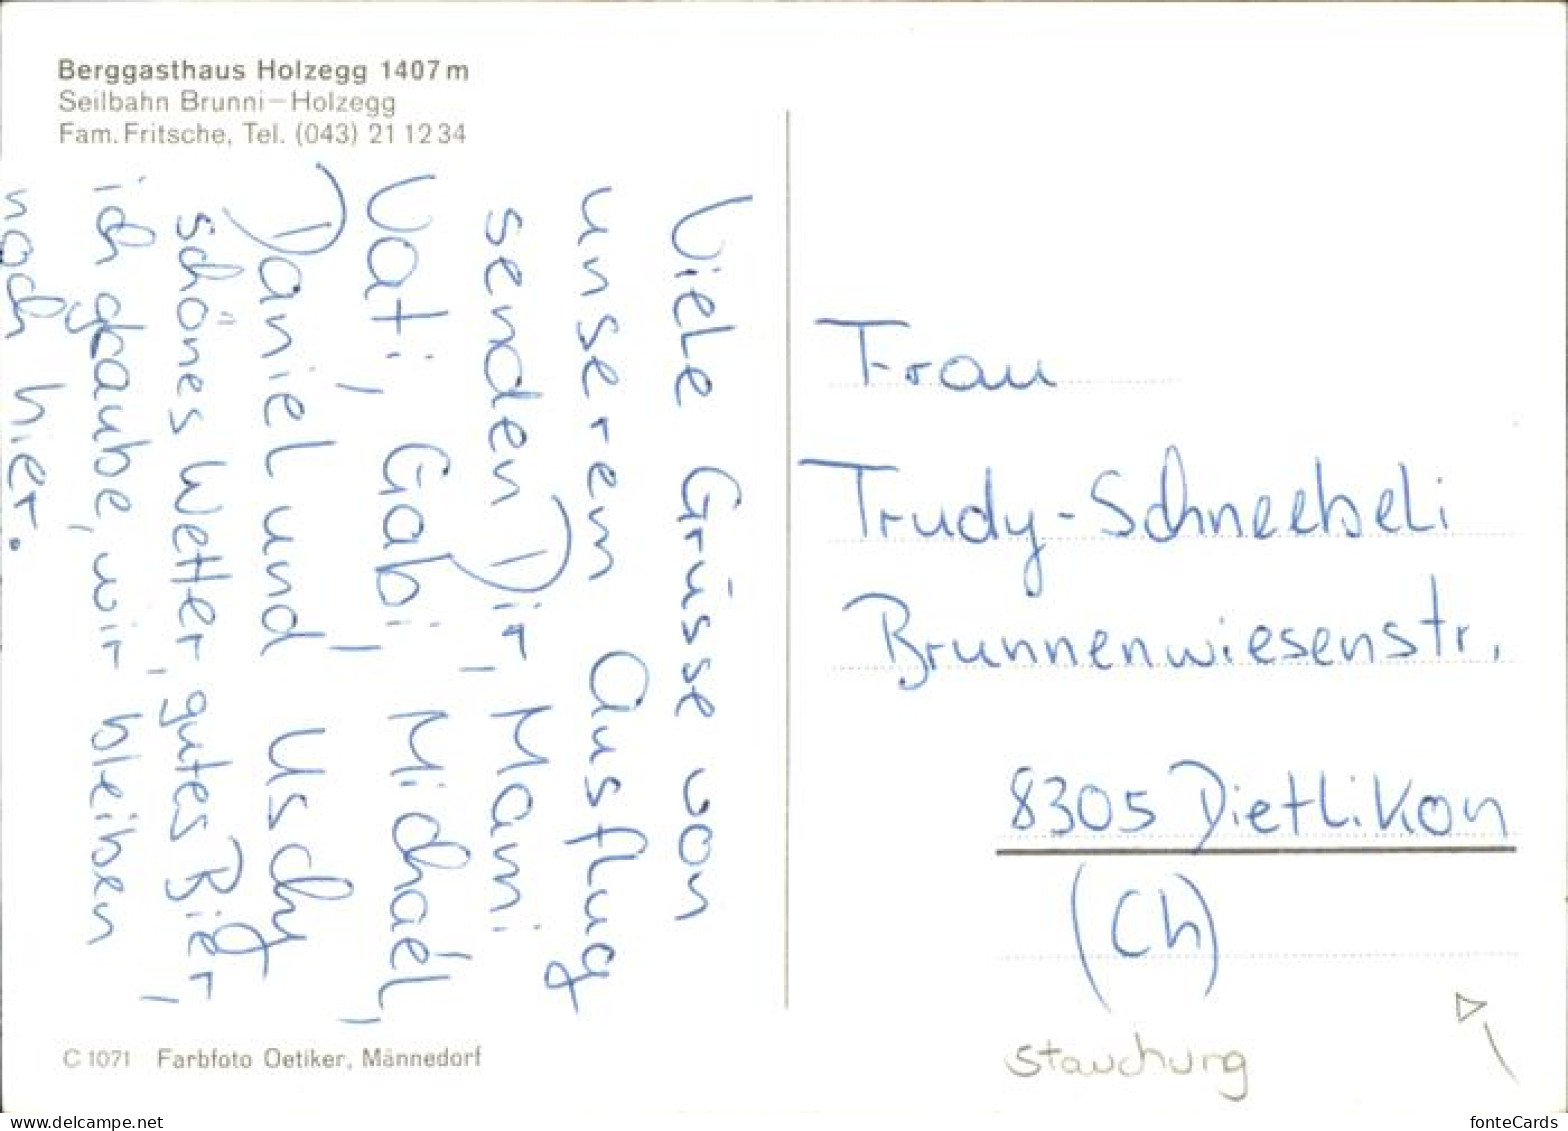 Berggasthaus Holzegg 1407 m
Seilbahn Brunni–Holzegg
Fam. Fritsche, Tel. (043) 21 12 34
Viele Grüsse von
unserem Ausflug
senden Dir, Mami
Vati, Gabi, Michael,
Daniel und Uschy
schönes Wetter, gutes Bier,
ich glaube, wir bleiben
noch hier.
Frau
Trudy-Schneebeli
Brunnenwiesenstr.
8305 Dietlikon
(Ch)
Stauchung
C 1071 Farbfoto Oetiker, Männedorf
www.delcampe.net
fonteCards